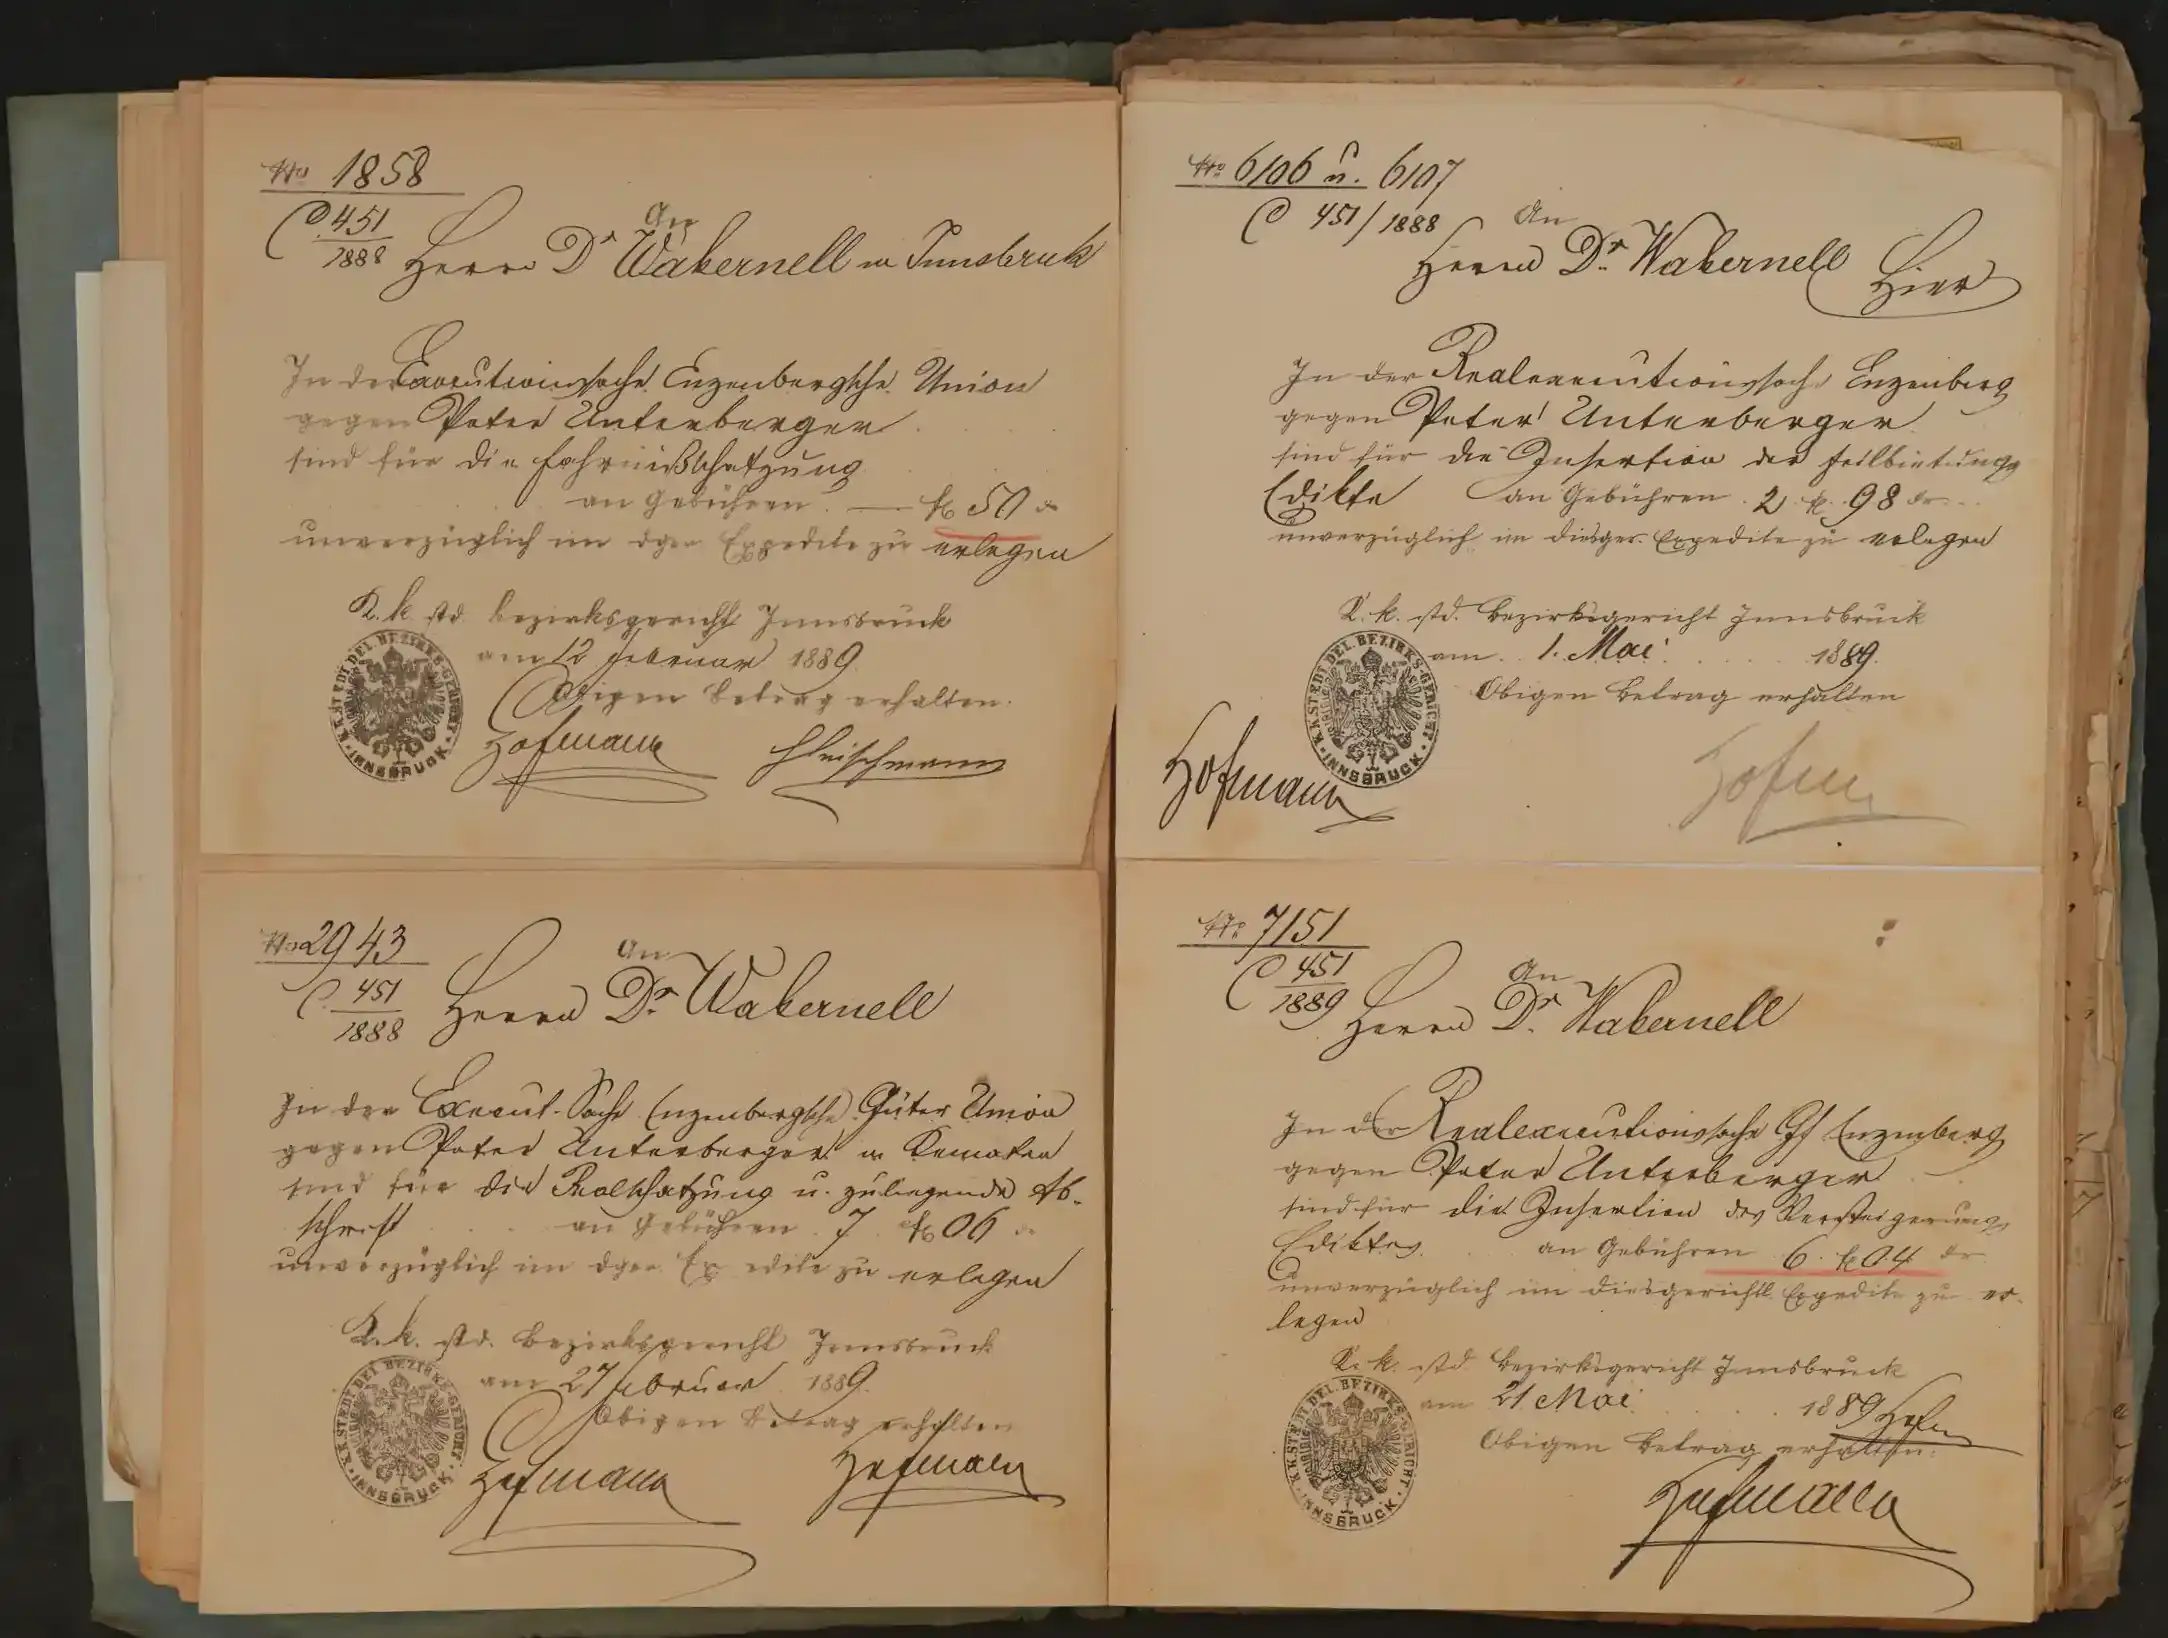 No 1858
C 451
1888
An
Herrn Dr Wakernell in Innsbruk
In der Executionssache Enzenbergsche Union
gegen Peter Unterberger
sind für die Fahrnißschatzung
an Gebühren — fl 50 kr
unverzüglich im dger Expedite zu erlegen
K. k. std. Bezirksgericht Innsbruck
am 12 Februar 1889.
Obigen Betrag erhalten.
Hofmann Fleischmann
K.K. STÄDT. DEL. BEZIRKS-GERICHT INNSBRUCK
No 2943
C. 451
1888
An
Herrn Dr. Wakernell
In der Execut. Sache Enzenbergsche Güter Union
gegen Peter Unterberger in Kematen
sind für die Realschatzung u. zuliegende Ab-
schrift an Gebühren 7 fl 06 kr
unverzüglich im dger Expedite zu erlegen
K. k. std. Bezirksgericht Innsbruck
am 27 Februar 1889.
Obigen Betrag erhalten
Hofmann Hofmann
K.K. STÄDT. DEL. BEZIRKS-GERICHT INNSBRUCK
No. 6106 u. 6107
C 451/1888
An
Herrn Dr. Wakernell Hier
In der Realexecutionssache Enzenberg
gegen Peter Unterberger
sind für die Insertion der Feilbietungs
Edikte an Gebühren 2 fl. 98 kr
unverzüglich im diesger. Expedite zu erlegen
K. k. std. Bezirksgericht Innsbruck
am 1. Mai 1889.
Obigen Betrag erhalten
Hofmann Hofm
K.K. STÄDT. DEL. BEZIRKS-GERICHT INNSBRUCK
No. 7151
C 451
1889
An
Herrn Dr. Wakernell
In der Realexecutionssache Gf Enzenberg
gegen Peter Unterberger
sind für die Insertion des Versteigerungs
Ediktes an Gebühren 6 fl 04 kr
unverzüglich im diesgerichtl. Expedite zu er-
legen
K. k. std. Bezirksgericht Innsbruck
am 21 Mai 1889 Hofm
Obigen Betrag erhalten.
Hofmann
K.K. STÄDT. DEL. BEZIRKS-GERICHT INNSBRUCK